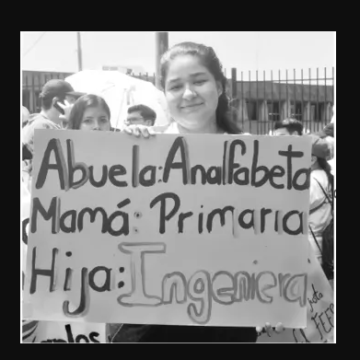 Abuela: Analfabeta
Mamá: Primaria
Hija: Ingeniera